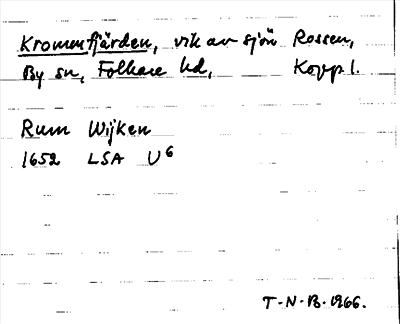 Krommfjärden, vik av sjön Rossen,
By sn, Folkare hd, Kopp l.
Rum Wijken
1652 LSA U6
T-N-B. 1966.